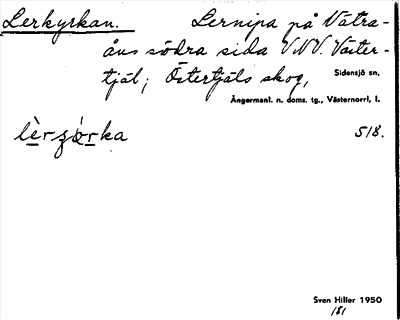 Lerkyrkan. Lernipa på Våtra-
åns södra sida V.N.V. Väster-
tjäl; Östertjäls skog, Sidensjö sn,
Ångermanl. n. doms. tg., Västernorrl, l.
518.
Sven Hiller 1950
181